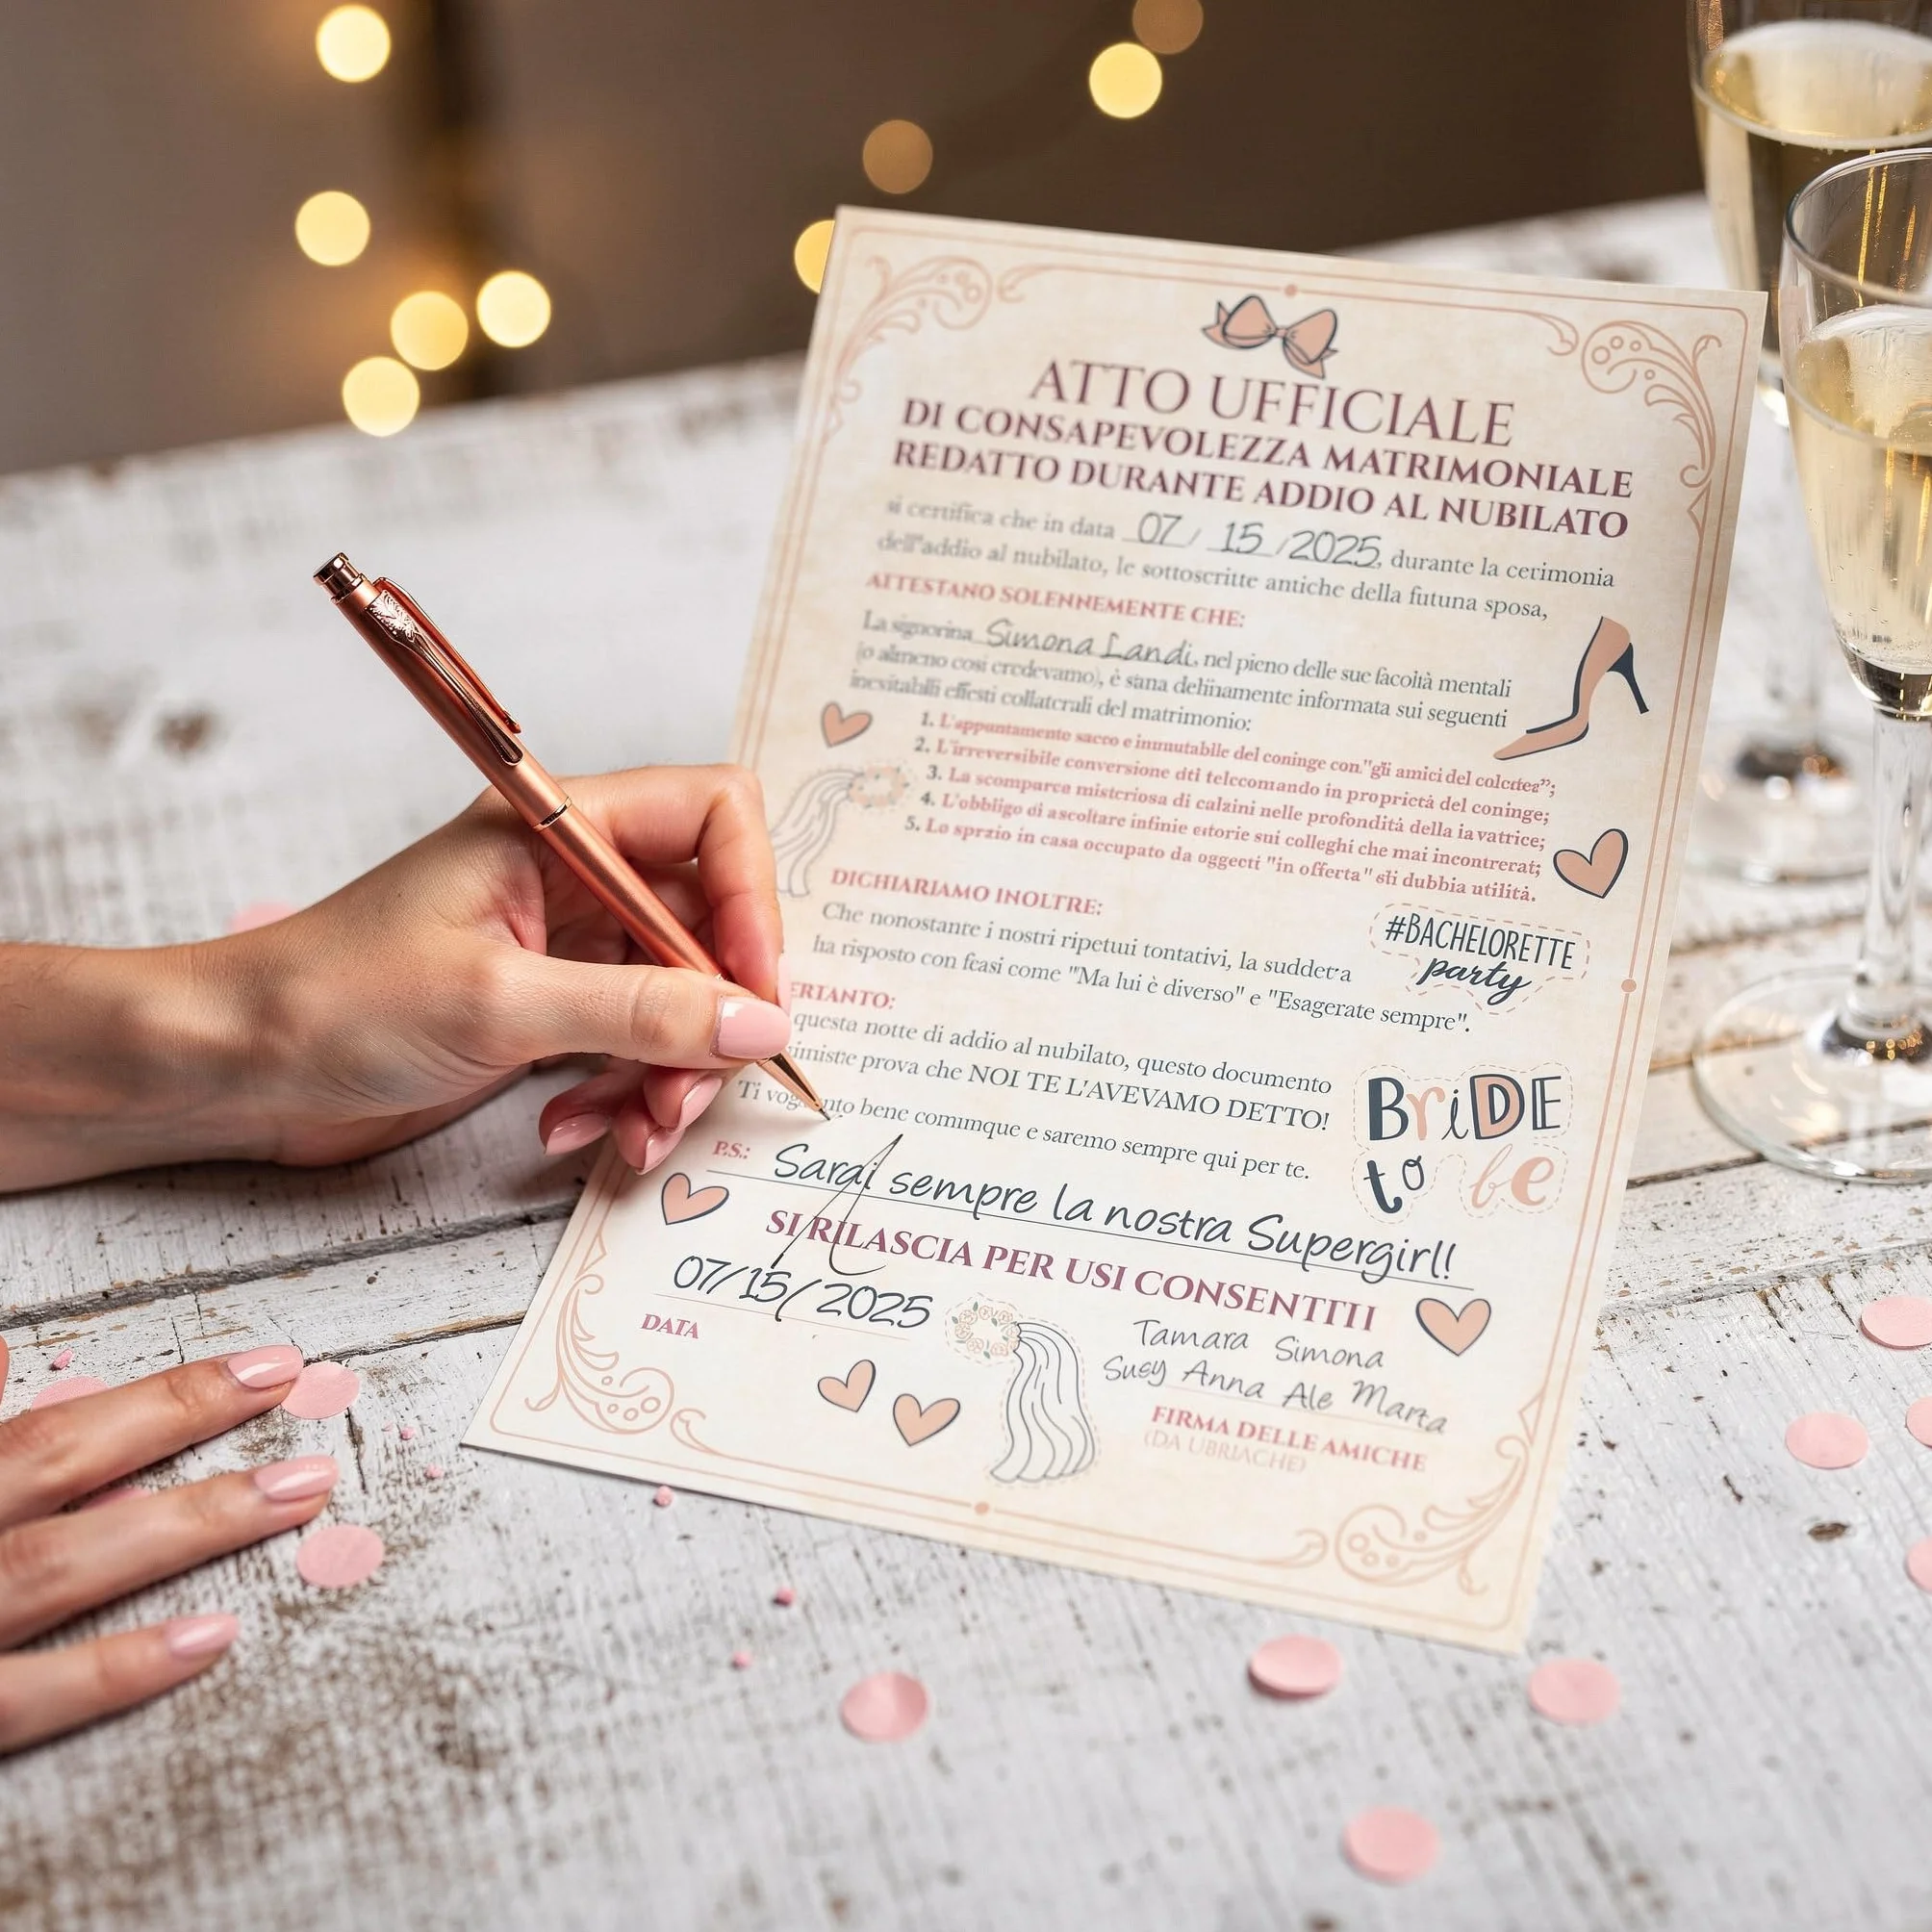 ATTO UFFICIALE
DI CONSAPEVOLEZZA MATRIMONIALE
REDATTO DURANTE ADDIO AL NUBILATO
si certifica che in data 07/ 15 /2025, durante la cerimonia
dell'addio al nubilato, le sottoscritte antiche della futuna sposa,
ATTESTANO SOLENNEMENTE CHE:
La signorina Simona Landi, nel pieno delle sue facoltà mentali
(o almeno così credevamo), è stana informata sui seguenti
effesti collaterali del matrimonio:
1. L'appuntamento sacro e immutabile del coninge con "gli amici del";
2. L'irreversibile conversione dti telecomando in proprietà del coninge;
3. La scomparca misteriosa di calzini nelle profondità della iavatrice;
4. L'obbligo di ascoltare infinie estorie sui colleghi che mai incontrerat;
5. Lo sprzio in casa occupato da oggecti "in offerta" sti dubbia utilità.
DICHIARIAMO INOLTRE:
Che nonostante i nostri ripetui tontativi, la suddetra
ha risposto con frasi come "Ma lui è diverso" e "Esagerate sempre".
#BACHELORETTE
party
ERTANTO:
questa notte di addio al nubilato, questo documento
prova che NOI TE L'AVEVAMO DETTO!
Ti bene commque e saremo sempre qui per te.
BRiDE
to be
P.S.: Sarai sempre la nostra Supergirl!
SI RILASCIA PER USI CONSENTITI
07/15/2025
DATA
Tamara Simona
Susy Anna Ale Marta
FIRMA DELLE AMICHE
(DA UBRIACHE)